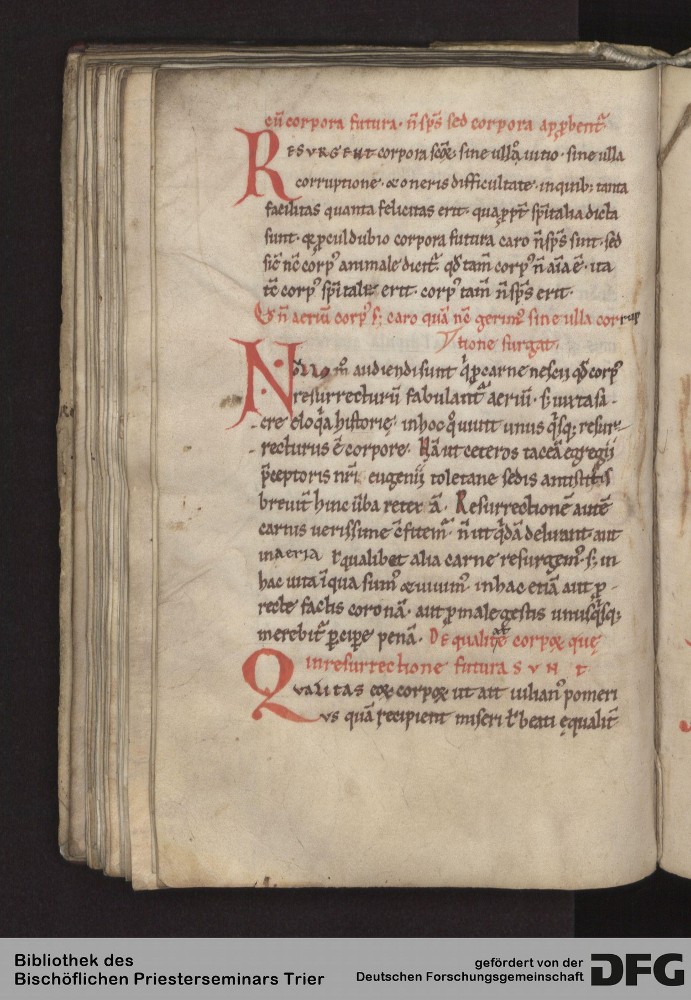 cū corpora futura · n̄ sp̄s sed corpora app̱bent᷑
Resurgent corpora scōꝝ sine ullo uitio · sine ulla
corruptione · & oneris difficultate · in quib; tanta
facilitas quanta felicitas erit · qua ꝓpt̄ sp̄italia dicta
sunt · q̄ ꝓcul dubio corpora futura caro n̄ sp̄s sunt · sed
sic̄ nc̄ corp᷒ animale dicit᷑ qd̄ tam̄ corp᷒ n̄ aīa ē · ita
tc̄ corp᷒ sp̄itale erit · corp᷒ tam̄ n̄ sp̄s erit ·
Qd̄ n̄ aeriū corp᷒ s; caro quā nc̄ gerim᷒ sine ulla corrup
tione surgat ·
Nōnullo m̄ audiendi sunt q̄ ꝓ carne nescii qd̄ corp᷒
resurrecturū fabulant᷑ aeriū · s; iuxta sa-
cre eloq̄a historię · in hoc quo uiuit unus q̄sq; resur-
recturus ē corpore · Nā ut ceteros taceā egregii
p̄ceptoris nr̄i eugenii toletane sedis antistitis
breuit̄ hinc ūba retexā · Resurrectionē autē
carnis uerissime c̄fitem᷑ · n̄ ut q̄dā delirant aut
in aeria ł qualibet alia carne resurgem᷒ · s; in
hac uita ī qua sum᷒ & uiuim᷒ · in hac etiā aut ꝓ
recte factis coronā · aut ꝓ male gestis unusq̄sq;
merebit᷑ ꝑcipe penā · De qualitate corpoꝝ quę
in resurrectione futura sunt
Qualitas eoꝝ corpoꝝ ut ait iulian᷒ pomeri
us quā recipient miseri ł beati ęqualit̄
Bibliothek des
Bischöflichen Priesterseminars Trier
gefördert von der
Deutschen Forschungsgemeinschaft
DFG